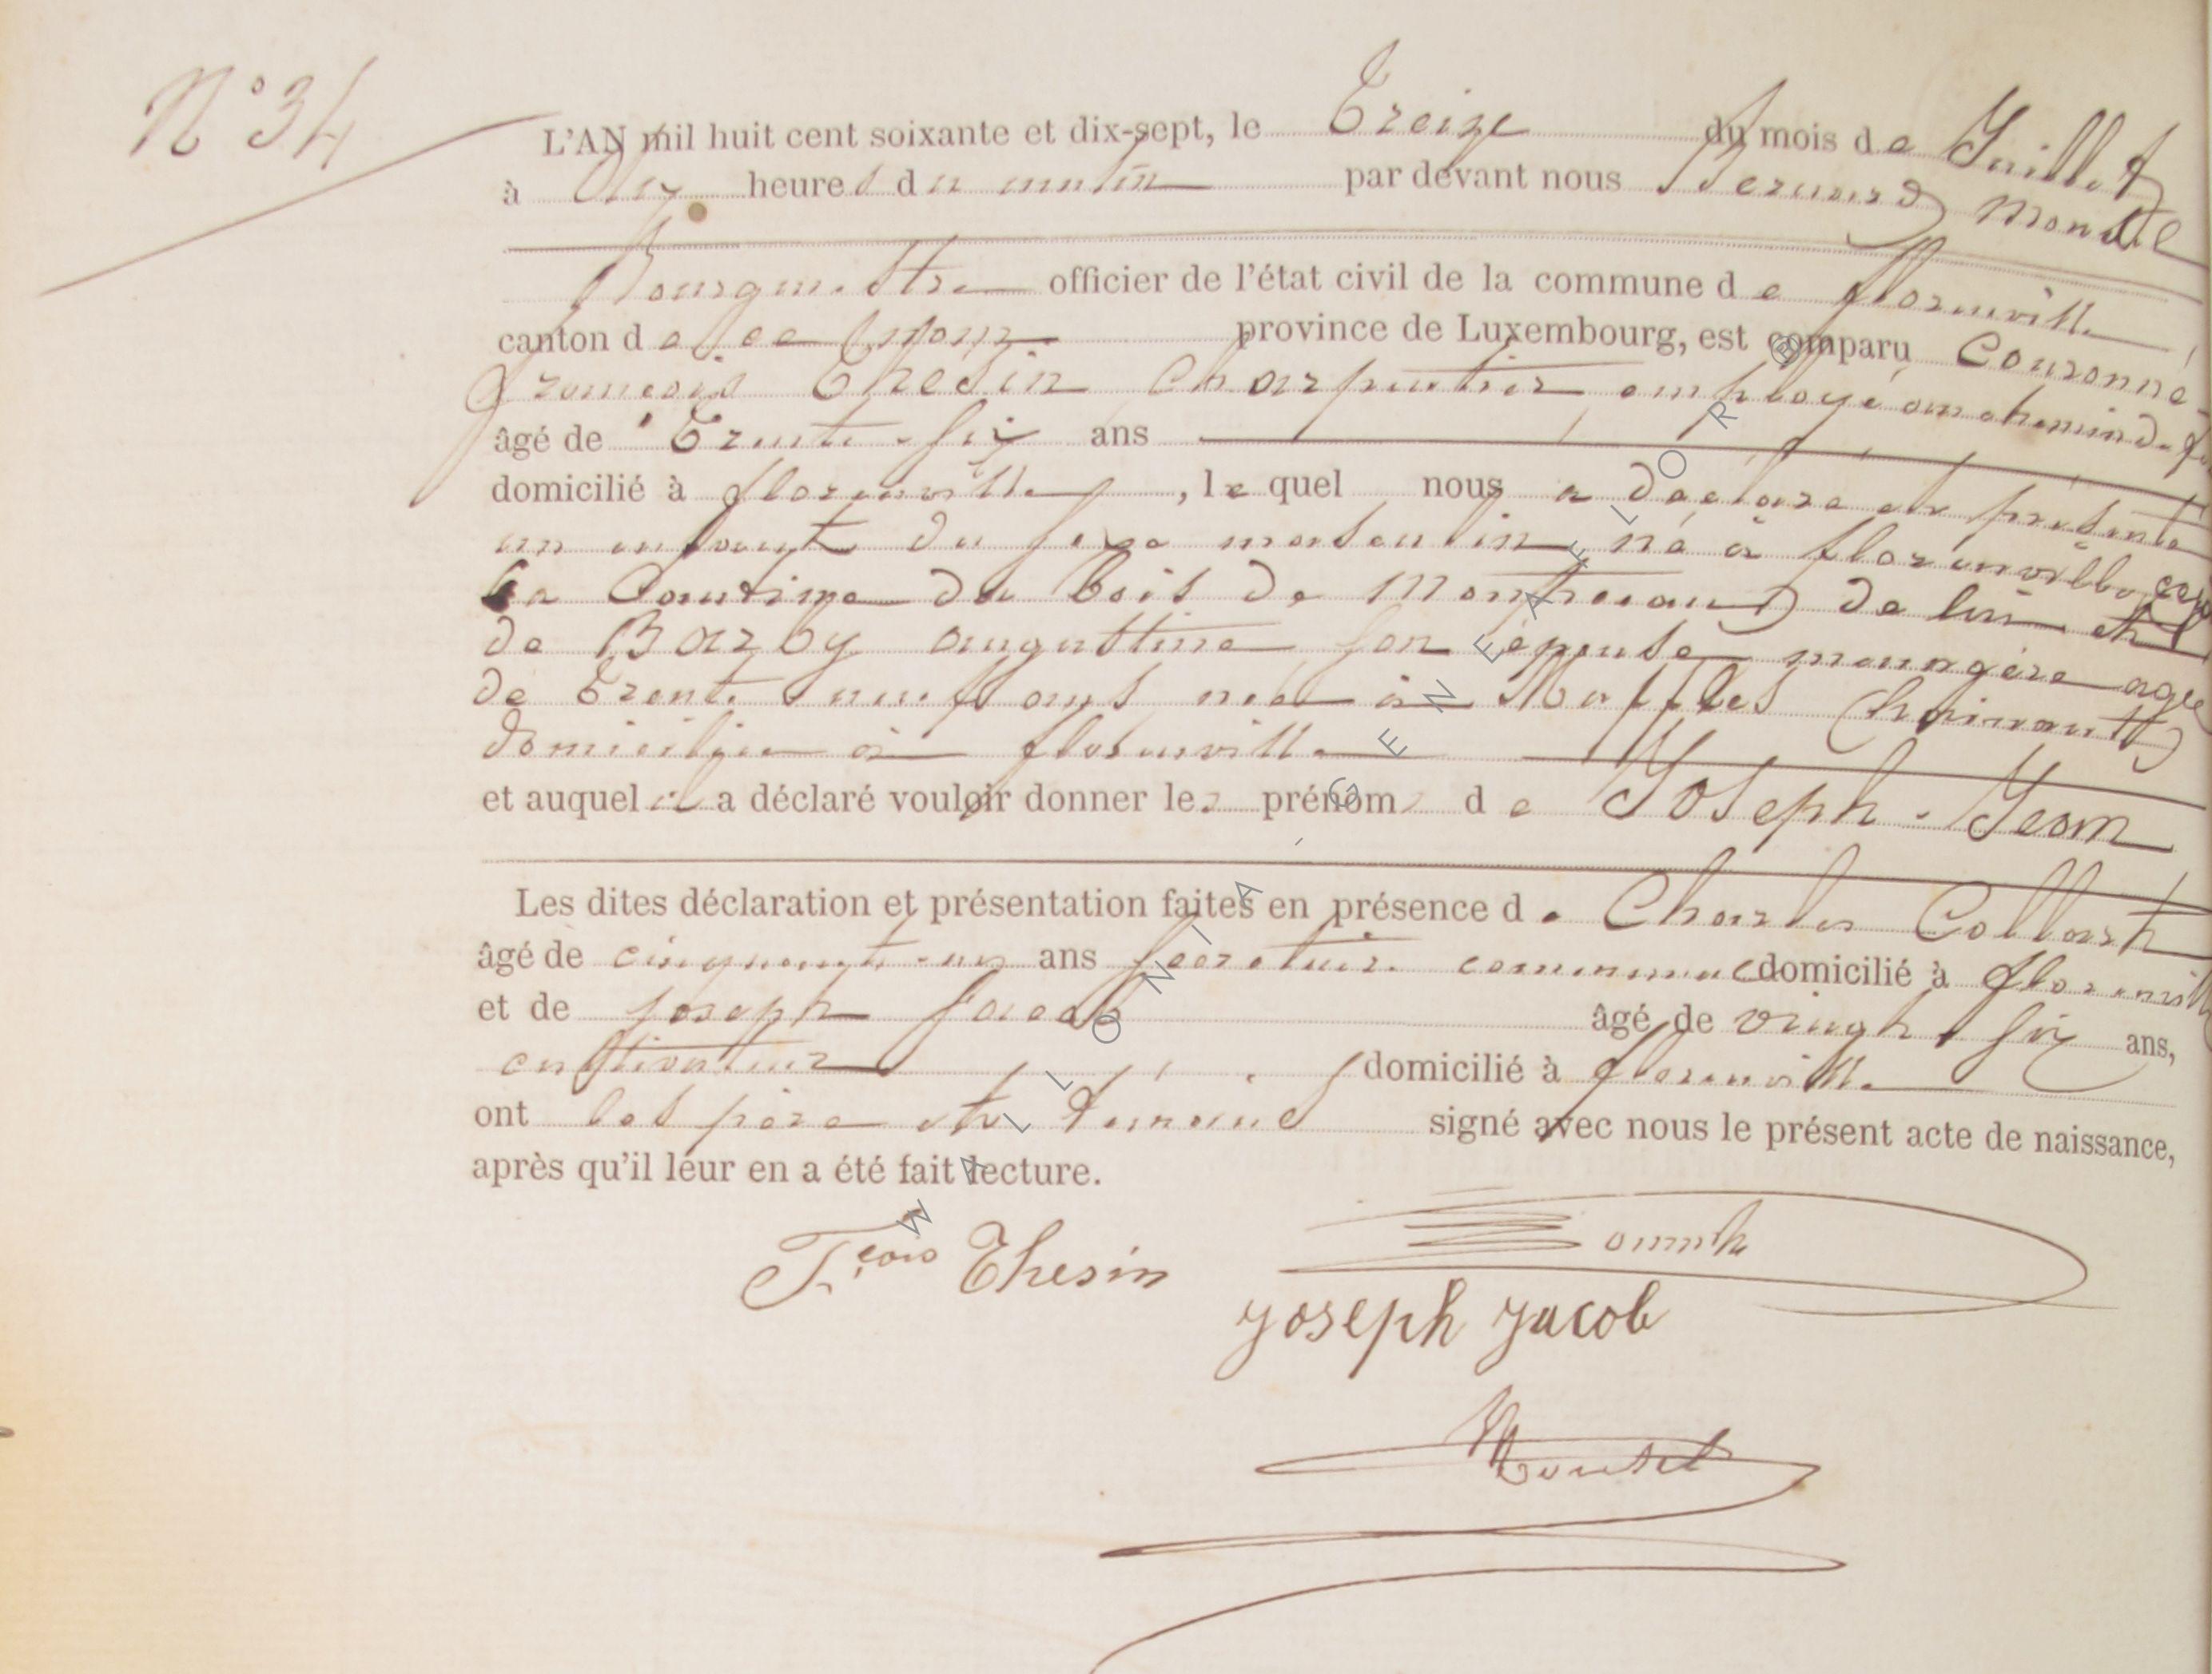 N° 34
L'AN mil huit cent soixante et dix-sept, le Treize du mois de Juillet
à dix heures du matin par devant nous Bernard
Bourgmestre officier de l'état civil de la commune de florenville
canton de province de Luxembourg, est comparu Couronné
françois Thesin charpentier employé au chemin de
âgé de Trente-six ans
domicilié à florenville, lequel nous a déclaré et présenté
un enfant du sexe masculin né à florenville
la Cantine du bois de de lui et
de Barby augustine son épouse menagère agée
de trente neuf ans née à Maffles (hainautt)
domiciliée à florenville
et auquel il a déclaré vouloir donner les prénoms de Joseph-Jean
Les dites déclaration et présentation faites en présence de Charles Collart
âgé de cinquante-un ans secretaire communal domicilié à florenville
et de joseph Jacob âgé de vingt-six ans,
cultivateur domicilié à florenville
ont les père et témoins signé avec nous le présent acte de naissance,
après qu'il leur en a été fait lecture.
Fçois Thesin
joseph jacob
WALLONIA - GENEALOR